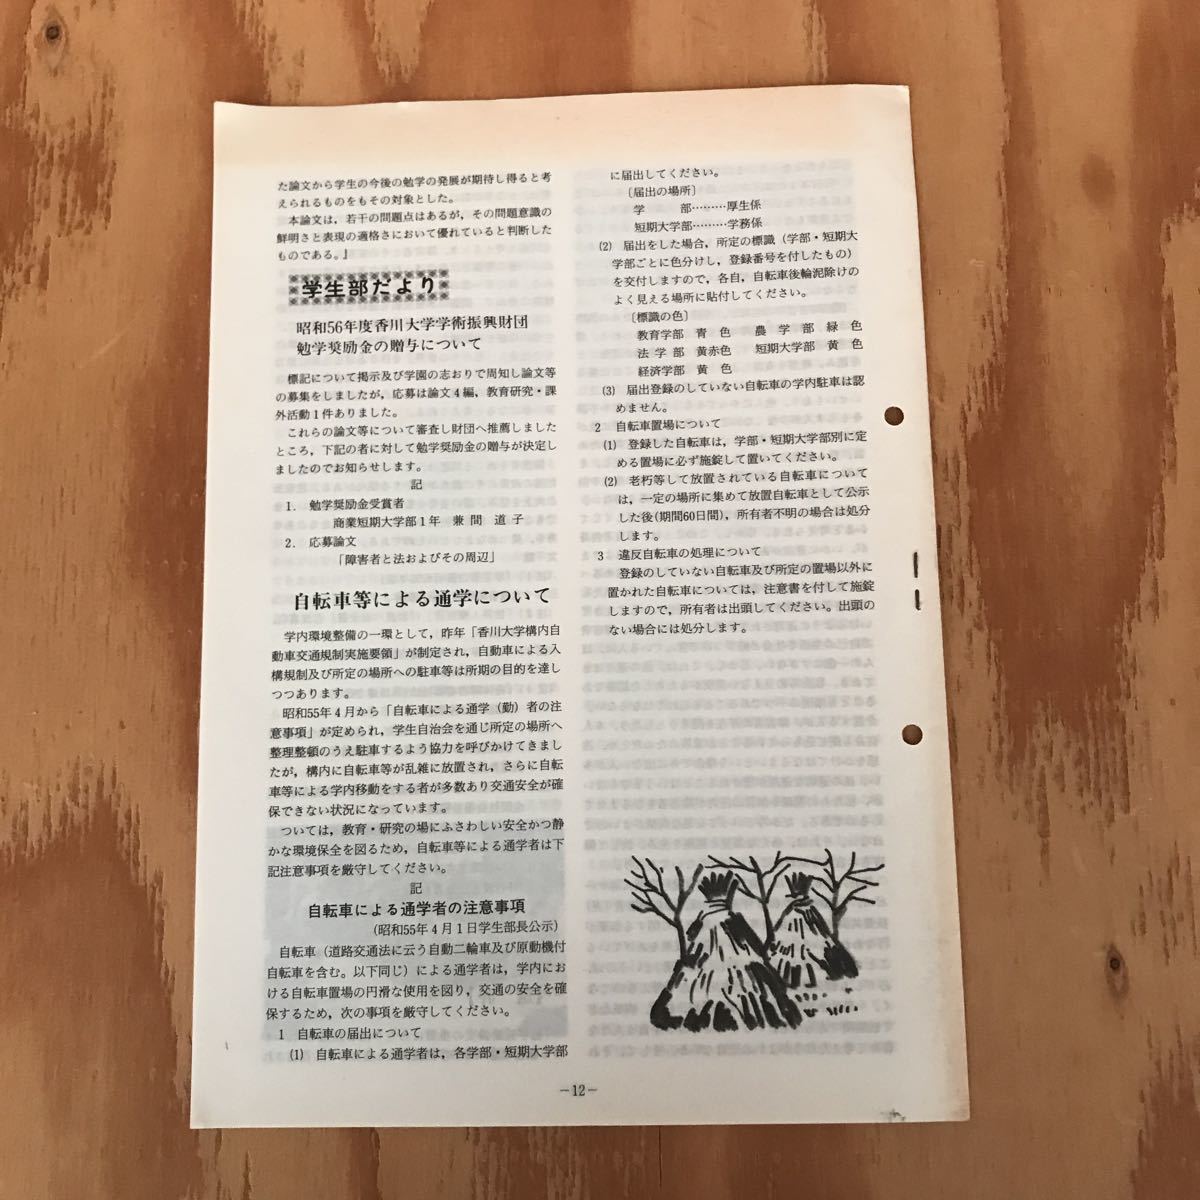 た論文から学生の今後の勉学の発展が期待し得ると考
えられるものをもその対象とした。
本論文は，若干の問題点はあるが，その問題意識の
鮮明さと表現の適格さにおいて優れていると判断した
ものである。』
学生部だより
昭和56年度香川大学学術振興財団
勉学奨励金の贈与について
標記について掲示及び学園の志おりで周知し論文等
の募集をしましたが，応募は論文４編，教育研究・課
外活動１件ありました。
これらの論文等について審査し財団へ推薦しました
ところ，下記の者に対して勉学奨励金の贈与が決定し
ましたのでお知らせします。
記
1. 勉学奨励金受賞者
商業短期大学部１年 兼間 道子
2. 応募論文
「障害者と法およびその周辺」
自転車等による通学について
学内環境整備の一環として，昨年「香川大学構内自
動車交通規制実施要領」が制定され，自動車による入
構規制及び所定の場所への駐車等は所期の目的を達し
つつあります。
昭和55年４月から「自転車による通学（勤）者の注
意事項」が定められ，学生自治会を通じ所定の場所へ
整理整頓のうえ駐車するよう協力を呼びかけてきまし
たが，構内に自転車等が乱雑に放置され，さらに自転
車等による学内移動をする者が多数あり交通安全が確
保できない状況になっています。
ついては，教育・研究の場にふさわしい安全かつ静
かな環境保全を図るため，自転車等による通学者は下
記注意事項を厳守してください。
記
自転車による通学者の注意事項
（昭和55年４月１日学生部長公示）
自転車（道路交通法に云う自動二輪車及び原動機付
自転車を含む。以下同じ）による通学者は，学内にお
ける自転車置場の円滑な使用を図り，交通の安全を確
保するため，次の事項を厳守してください。
1 自転車の届出について
(1) 自転車による通学者は，各学部・短期大学部
に届出してください。
〔届出の場所〕
学 部………厚生係
短期大学部………学務係
(2) 届出をした場合，所定の標識（学部・短期大
学部ごとに色分けし，登録番号を付したもの）
を交付しますので，各自，自転車後輪泥除けの
よく見える場所に貼付してください。
〔標識の色〕
教育学部 青 色 農 学 部 緑 色
法 学 部 黄赤色 短期大学部 黄 色
経済学部 黄 色
(3) 届出登録のしていない自転車の学内駐車は認
めません。
2 自転車置場について
(1) 登録した自転車は，学部・短期大学部別に定
める置場に必ず施錠して置いてください。
(2) 老朽等して放置されている自転車について
は，一定の場所に集めて放置自転車として公示
した後(期間60日間)，所有者不明の場合は処分
します。
3 違反自転車の処理について
登録のしていない自転車及び所定の置場以外に
置かれた自転車については，注意書を付して施錠
しますので，所有者は出頭してください。出頭の
ない場合には処分します。
－12－